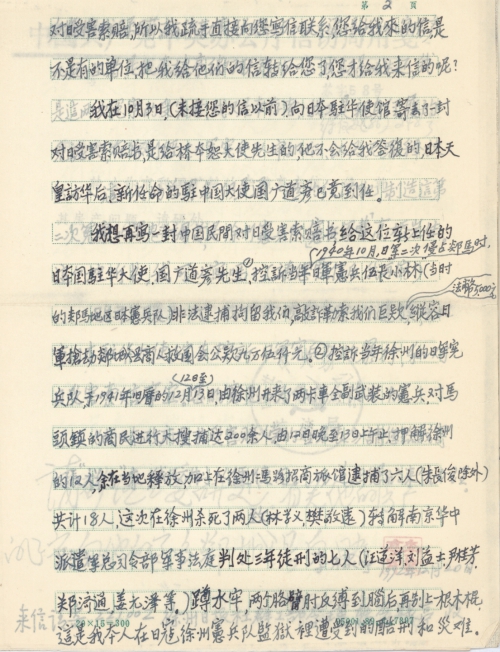 第 2 页
对日受害索赔,所以我疏于直接向您写信联系,您给我来的信,是
不是有的单位,把我给他们的信转给您了,您才给我来信的呢?
我在10月3日,(未接您的信以前)向日本驻华使馆寄去了一封
对日受害索赔书,是给桥本恕大使先生的,他不会给我答復的,日本天
皇访华后,新任命的駐中国大使国广道彦已竟到任。
我想再寫一封中国民間对日受害索赔书给这位新上任的
(1940年10月,日军二次侵占郯馬时,
日本国駐华大使,国广道彦先生,①控訴当年日軍憲兵伍長小林(当时
的郯馬地区日本憲兵队)非法逮捕拘留我伯,敲詐勒索我们巨款,縱容日
法幣5000元
軍搶劫郯城县商人救国会公款九万伍仟元。②控訴当年徐州的日軍憲
(12日至)
兵队,于1941年旧曆的12月13日,由徐州开来了两卡車全副武装的憲兵,对馬
頭鎮的商民进行大搜捕达200余人,由12日晚至13日上午止,押解徐州
的12人,余在当地释放,加上在徐州二馬路招商旅馆逮捕了六人(朱長俊除外)
共计18人,这次在徐州杀死了两人(林孝义,樊敬遠)转解南京华中
派遣軍总司令部軍事法庭判处三年徒刑的七人(汪道洋,刘益士,
郑济通,姜元泽等。)蹲水牢,两个胳臂肘反缚到腦后再别上根木棍,
這是我本人在日寇徐州憲兵队監獄裡遭受到的酷刑和災难。
来信
20×15=300